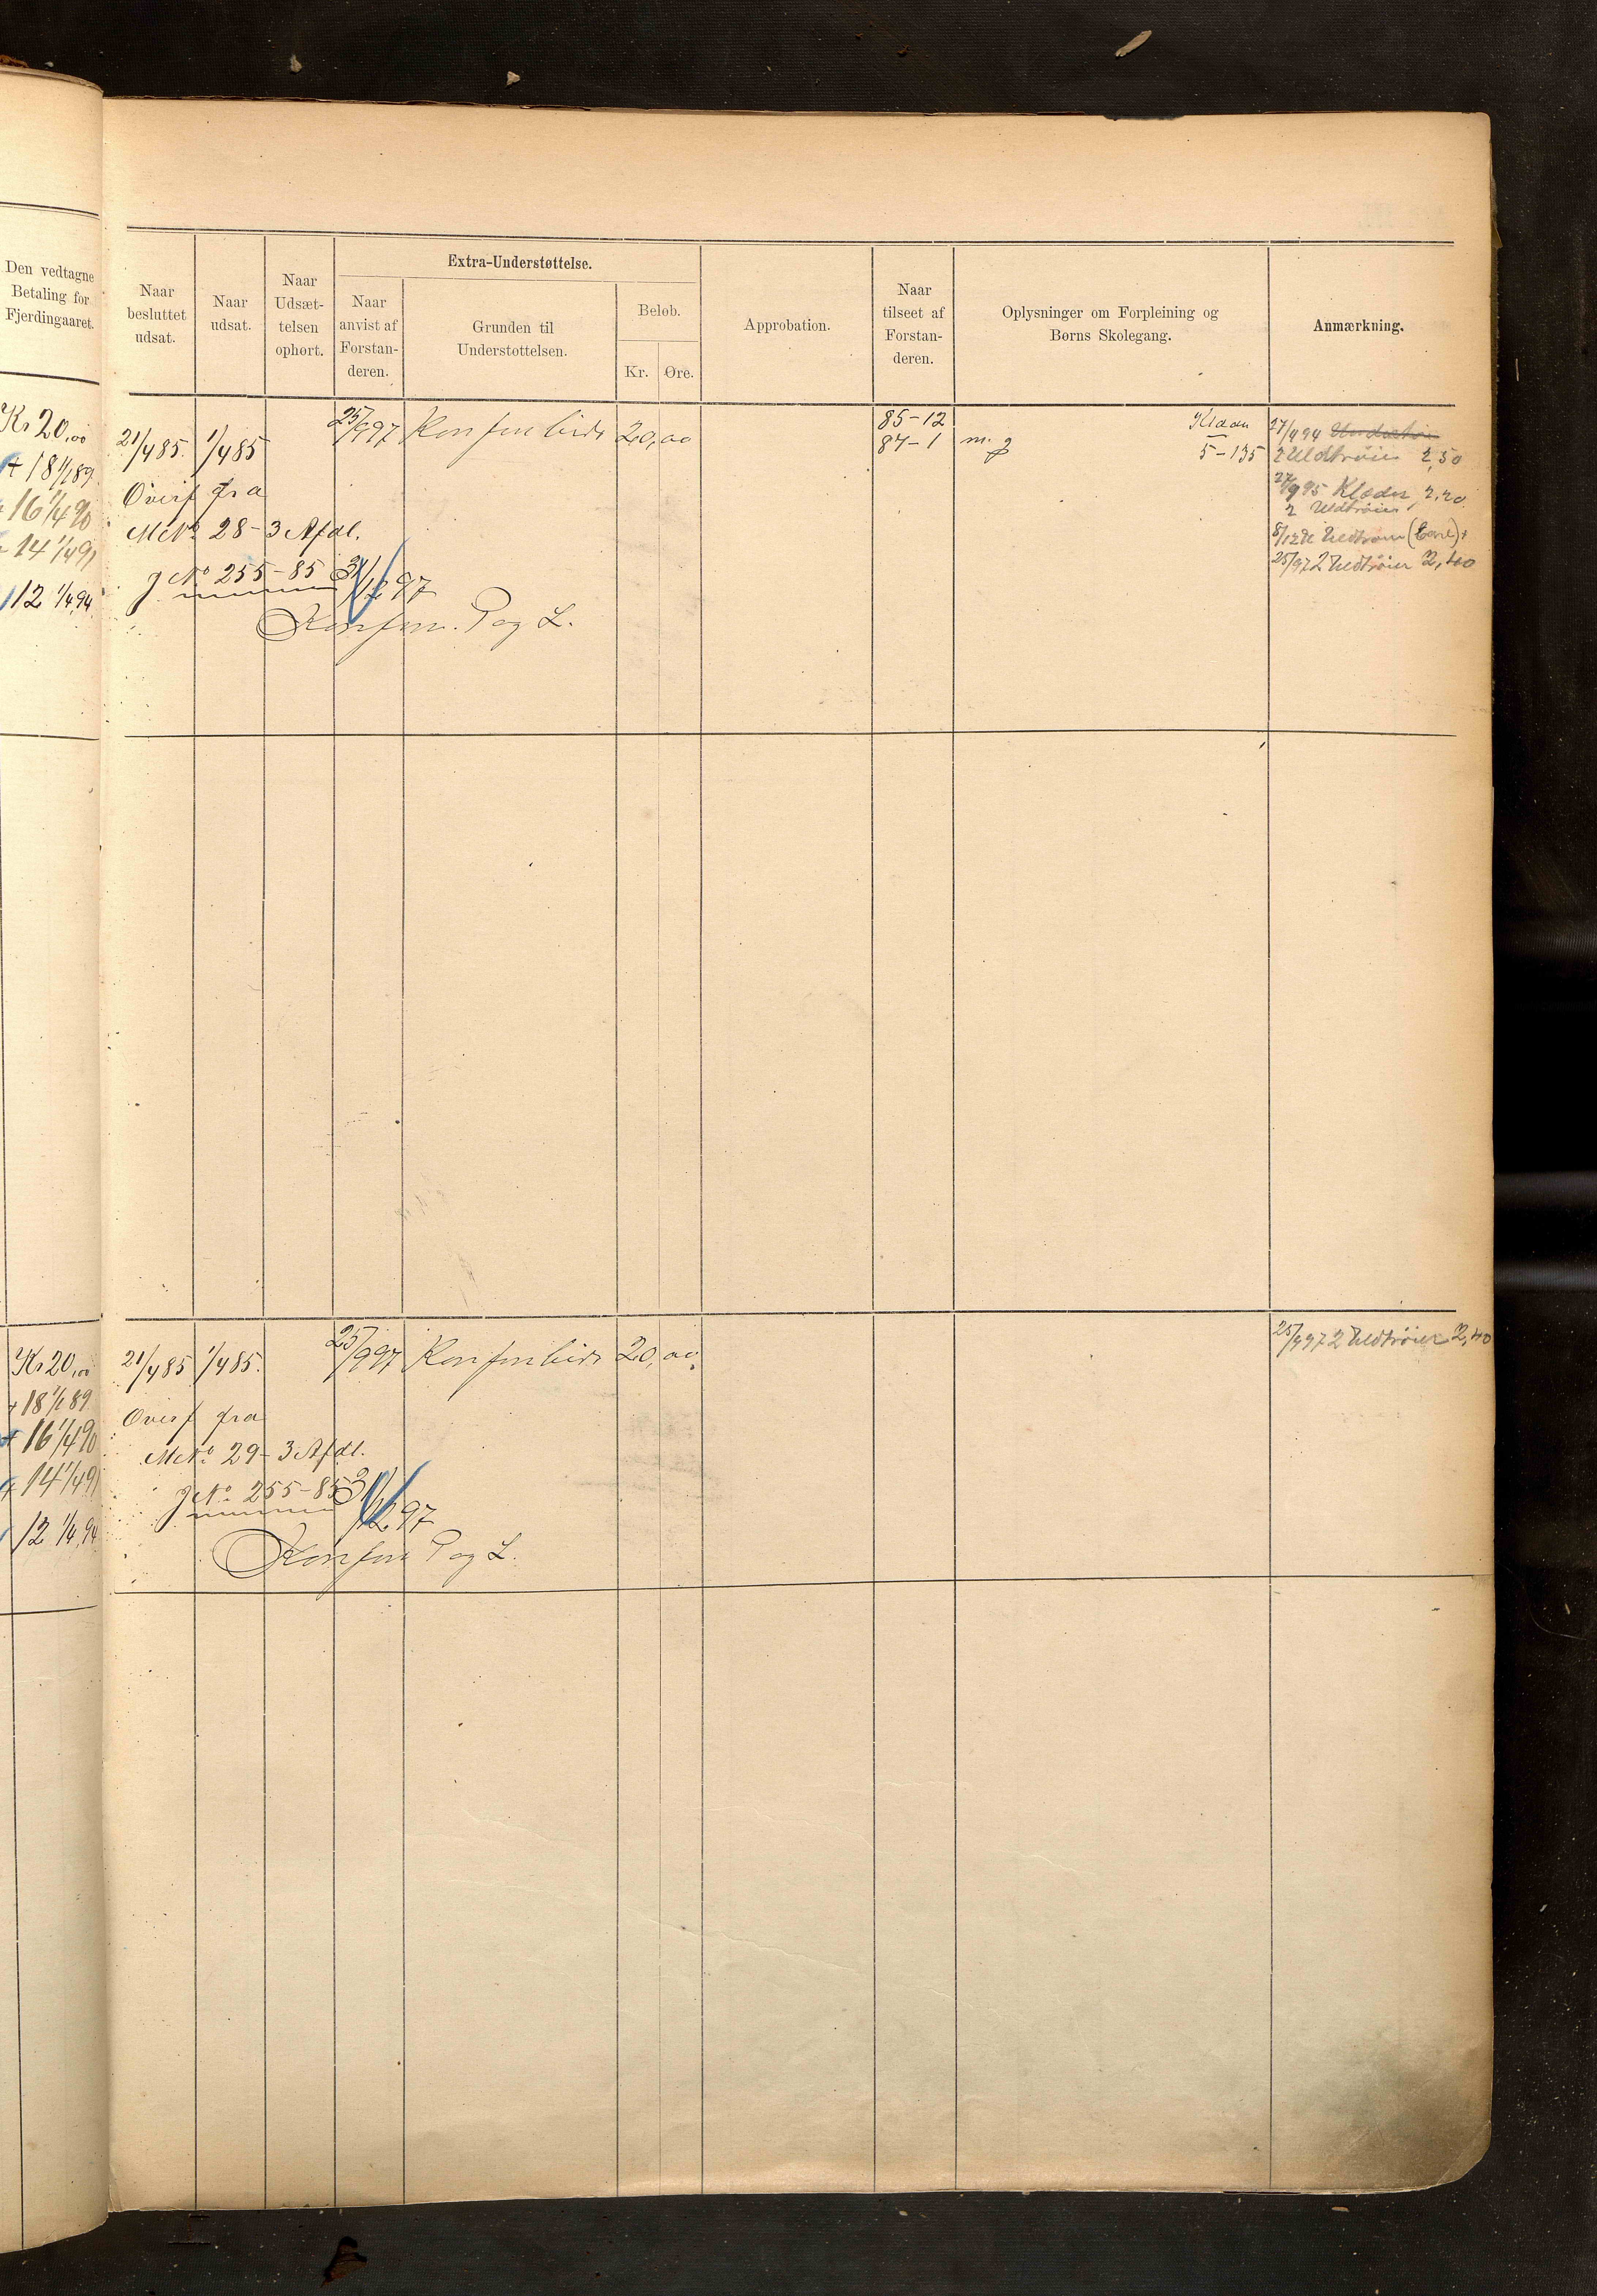 Den vedtagne
Betaling for
Fjerdingaaret.
Naar
besluttet
udsat.
Naar
udsat.
Naar
Udsæt-
telsen
ophørt.
Extra-Understøttelse.
Naar
anvist af
Forstan-
deren.
Grunden til
Understøttelsen.
Beløb.
Kr.
Øre.
Approbation.
Naar
tilseet af
Forstan-
deren.
Oplysninger om Forpleining og
Børns Skolegang.
Anmærkning.
Kr 20,00
+ 18 1/1 89
+ 16 1/4 90
14 1/4 91
12 1/4 94
21/4 85. 1/4 85
Overf fra
M No 28 - 3 Afdl.
J No 255 - 85
25/9 97 Konf
20,00
31/12 97
Konf. P og L.
85-12
87-1 m. g
5-135
27/4 94
2 Uldtrøier 2,50
27/9 95 Klæder 2,20
2 Uldtrøier
25/97 2 Uldtrøier 2,40
Kr 20,00
+ 18 1/1 89
+ 16 1/4 90
+ 14 1/4 91
12 1/4 94
21/4 85 1/4 85.
Overf fra
M No 29 - 3 Afdl.
J No 255 - 85
25/9 97 Konf
20,00
31/12 97
Konf P og L.
25/9 97 2 Uldtrøier 2,40